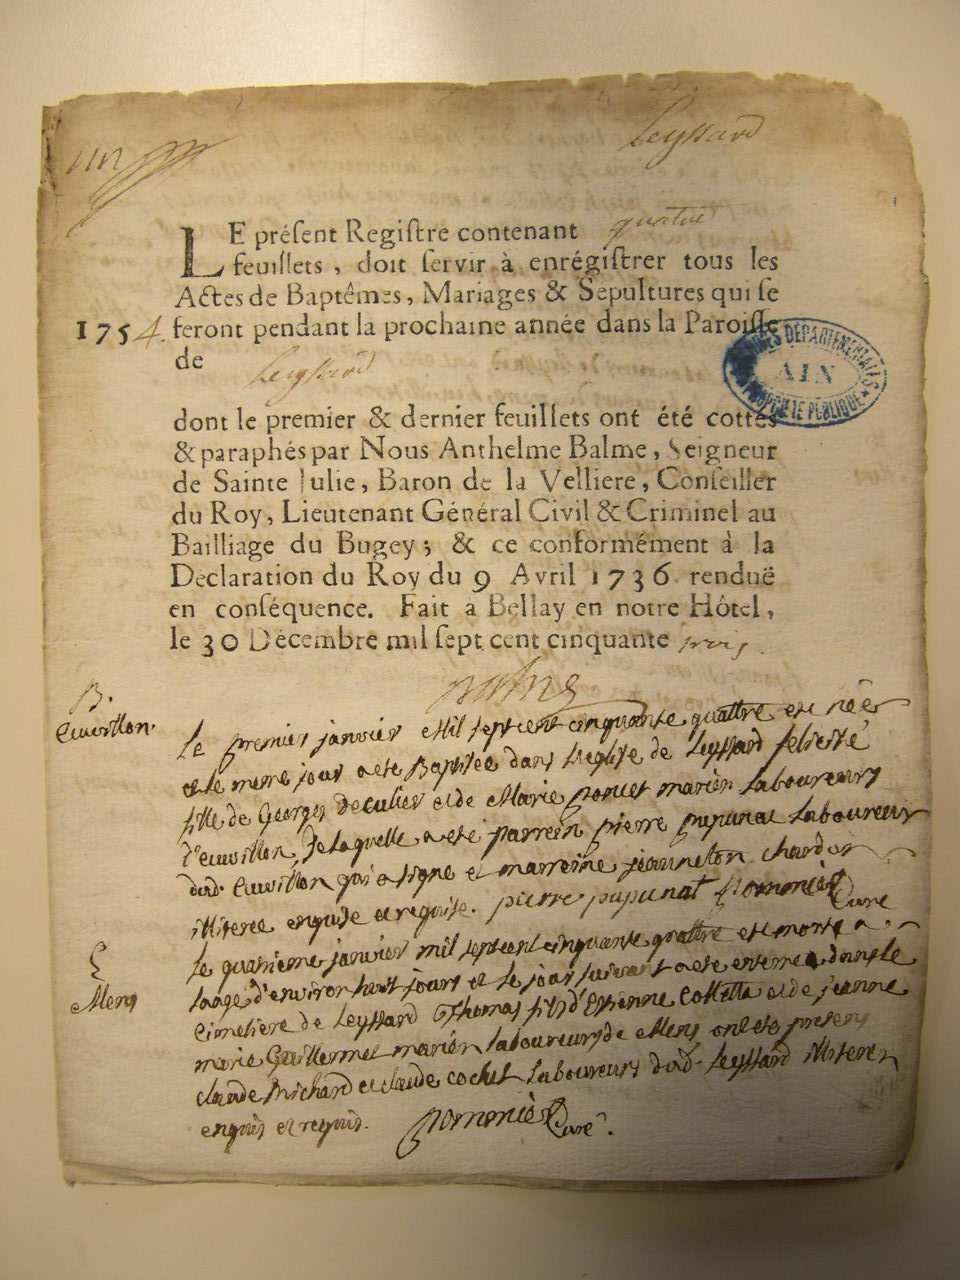 Leyssard
LE préſent Regiſtre contenant quatre
feuillets, doit ſervir à enrégiſtrer tous les
Actes de Baptêmes, Mariages & Sepultures qui ſe
1754. feront pendant la prochaine année dans la Paroiſſe
de Leyssard
ARCHIVES DÉPARTEMENTALES
AIN
PROPRIÉTÉ PUBLIQUE
dont le premier & dernier feuillets ont été cottés
& paraphés par Nous Anthelme Balme, Seigneur
de Sainte Julie, Baron de la Velliere, Conſeiller
du Roy, Lieutenant Général Civil & Criminel au
Bailliage du Bugey; & ce conformément à la
Declaration du Roy du 9 Avril 1736 renduë
en conſéquence. Fait a Bellay en notre Hôtel,
le 30 Décembre mil ſept cent cinquante trois.
B.
Cuvillon.
Le premier janvier Mil septcent cinquante quattre est née
et le meme jour a eté Baptisée dans l'eglise de Leyssard felicité
fille de Georges Decullier et de Marie poncet mariés Laboureurs
de laquelle a eté parrein pierre pupunat Laboureur
qui a signé et marreine jeanneton
illiteree enquise et requise. pierre pupunat Curé
Le quatrieme janvier mil septcent cinquante quattre est mort a
l'aage d'environ huit jours et le jour suivant a eté enterré dans le
Mens
Cimetiere de Leyssard Thomas fils d'Estienne Colletta et de jeanne
marie Guillermet mariés Laboureurs de Mens, ont eté presens
claude Michard et claude cochet Laboureurs dud. Leyssard illiterés
enquis et requis. Curé.